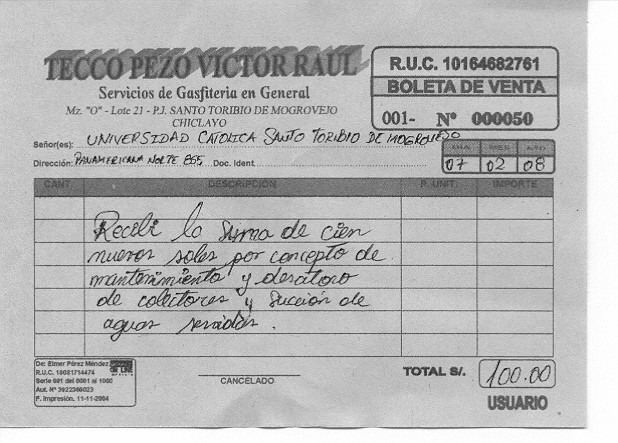 TECCO PEZO VICTOR RAUL
Servicios de Gasfiteria en General
Mz. "O" - Lote 21 - P.J. SANTO TORIBIO DE MOGROVEJO
CHICLAYO
R.U.C. 10164682761
BOLETA DE VENTA
001- Nº 000050
Señor(es): UNIVERSIDAD CATOLICA SANTO TORIBIO DE MOGROVEJO
Dirección: PANAMERICANA NORTE 855 Doc. Ident.
DIA MES AÑO
07 02 08
CANT. DESCRIPCION P. UNIT. IMPORTE
Recibí la suma de cien
nuevos soles por concepto de
mantenimiento y desatoro
de colectores y succión de
aguas servidas.
De: Elmer Pérez Méndez
R.U.C. 10081714474
Serie 001 del 0001 al 1000
Aut. Nº 3022366023
F. Impresión. 11-11-2004
CANCELADO
TOTAL S/. 100.00
USUARIO